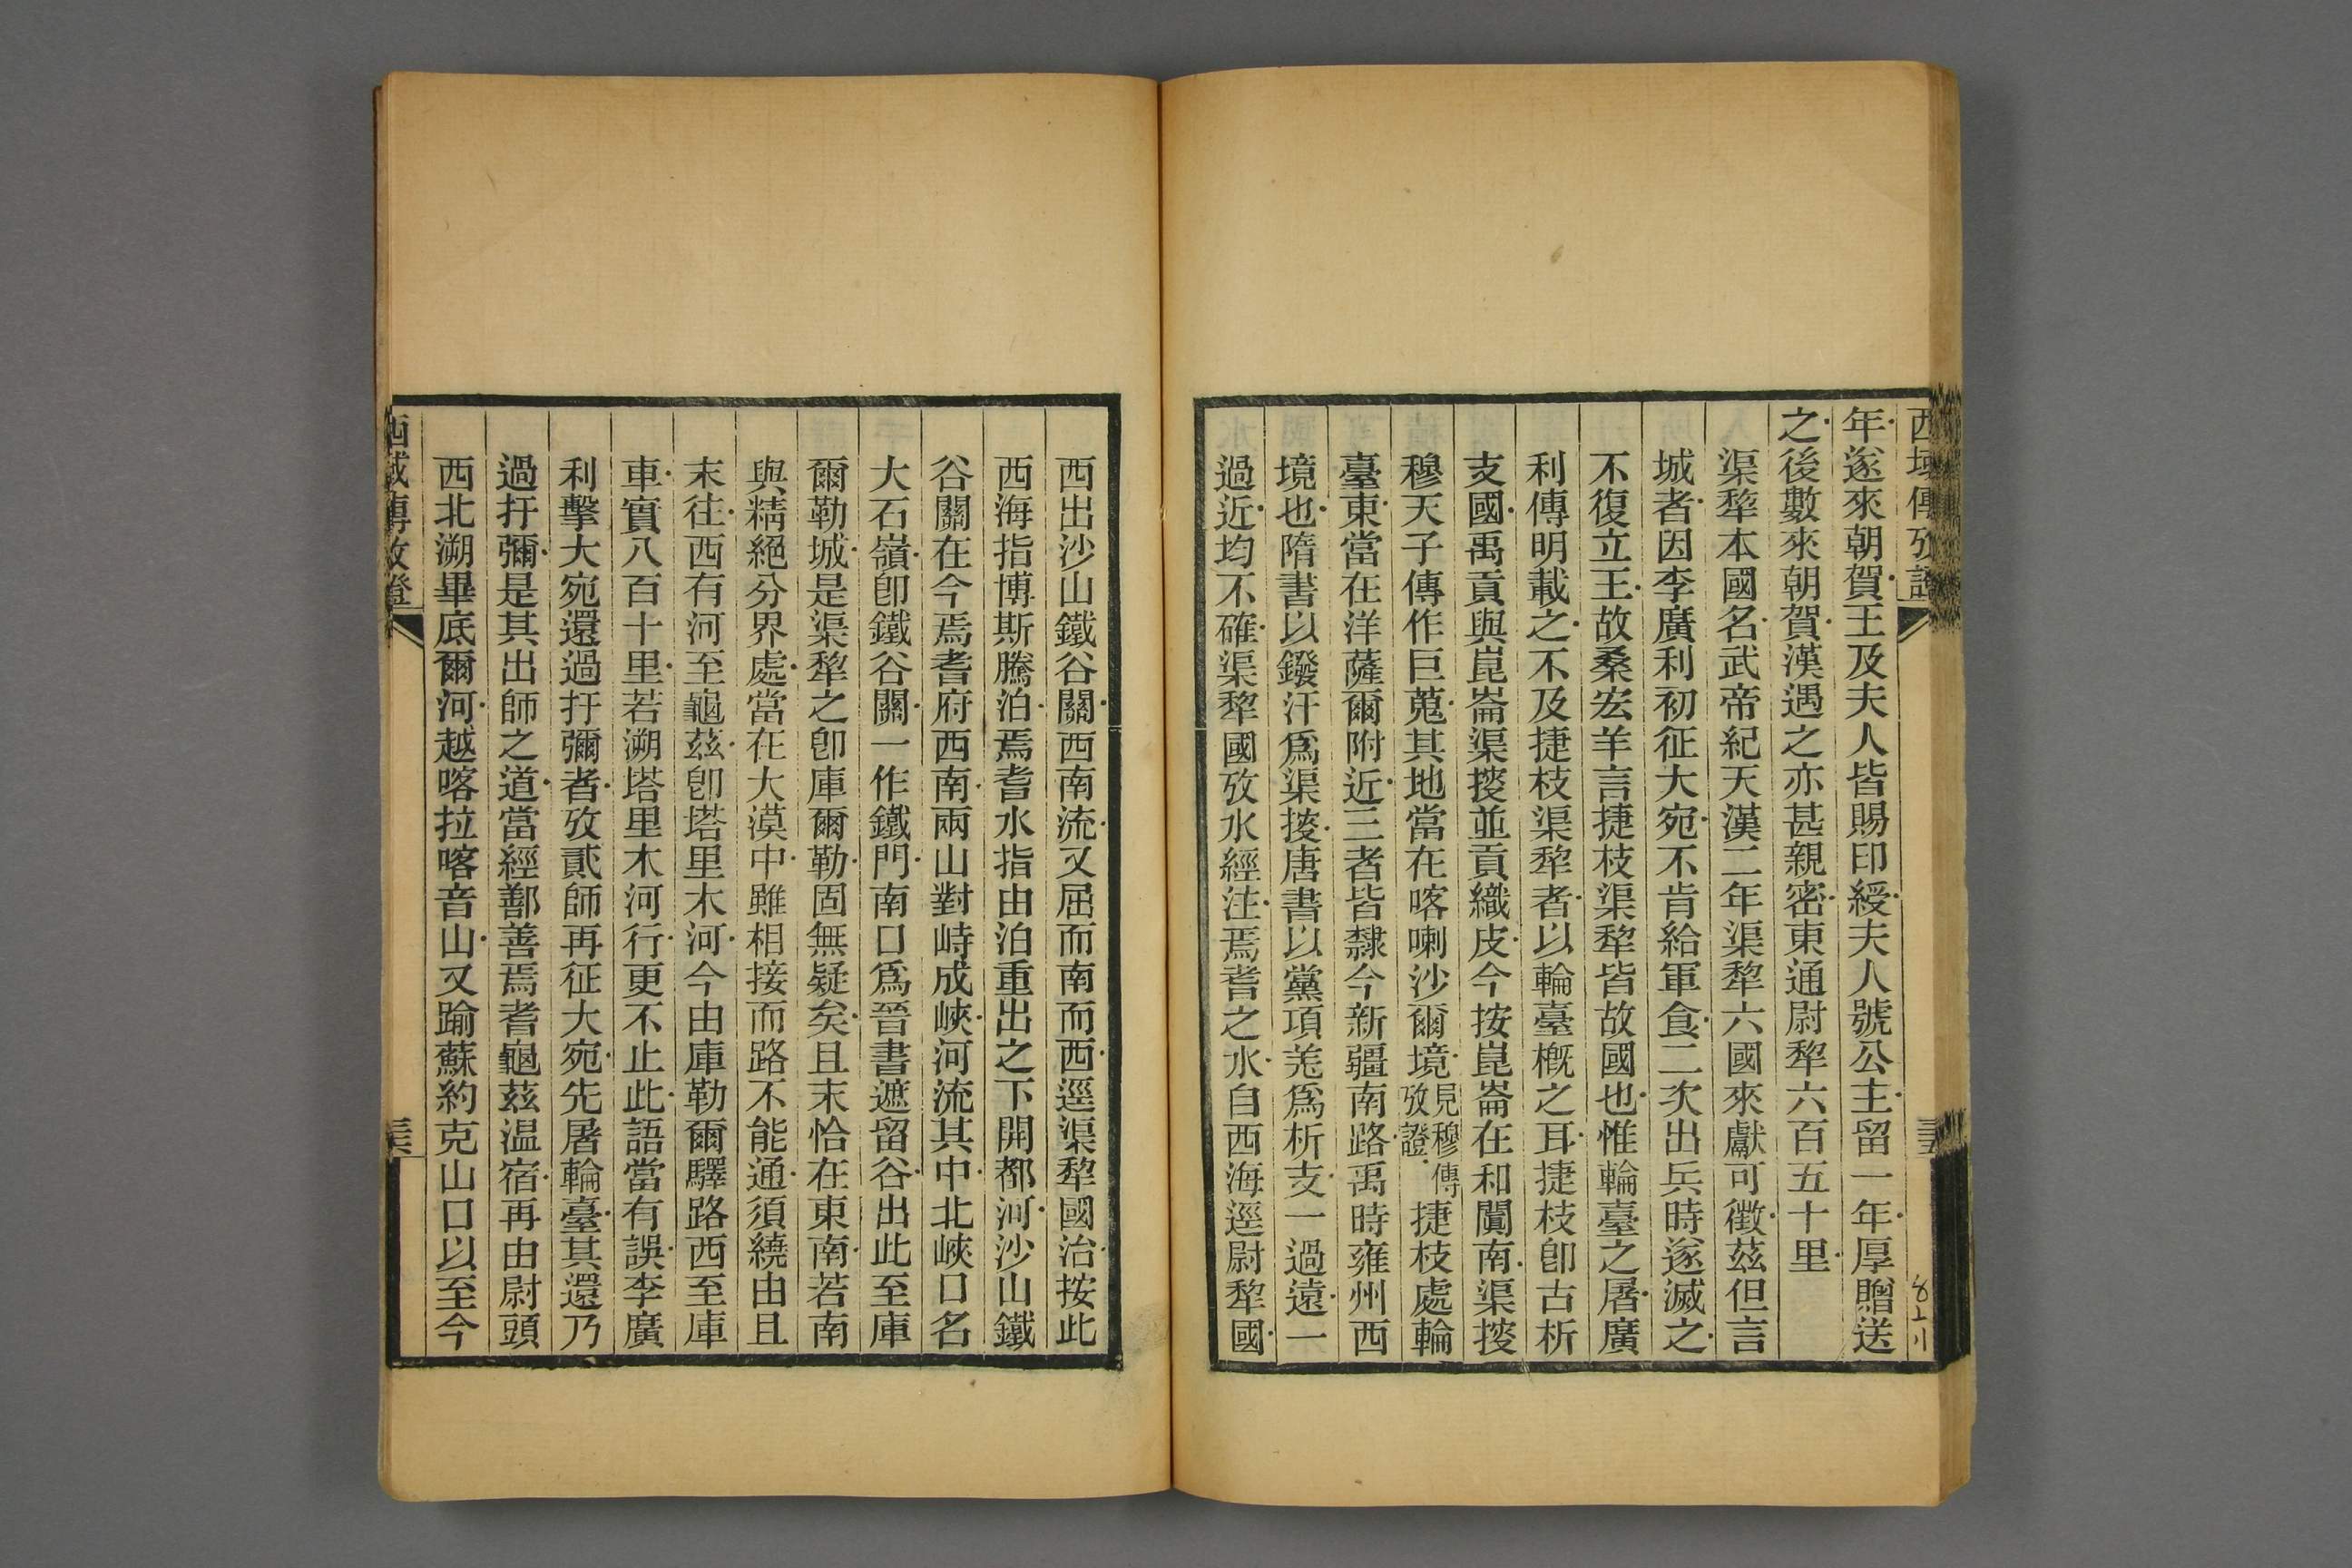 西域傳攷證
年遂來朝賀王及夫人皆賜印綬夫人號公主留一年厚贈送
之後數來朝賀漢遇之亦甚親密東通尉犂六百五十里
渠犂本國名武帝紀天漢二年渠犂六國來獻可徵茲但言
城者因李廣利初征大宛不肯給軍食二次出兵時遂滅之
不復立王故桑宏羊言捷枝渠犂皆故國也惟輪臺之屠廣
利傳明載之不及捷枝渠犂者以輪臺槪之耳捷枝卽古析
支國禹貢與崑崙渠搜並貢織皮今按崑崙在和闐南渠搜
穆天子傳作巨蒐其地當在喀喇沙爾境見穆傳攷證捷枝處輪
臺東當在洋薩爾附近三者皆隸今新疆南路禹時雍州西
境也隋書以鏺汗爲渠搜唐書以黨項羌爲析支一過遠一
過近均不確渠犂國攷水經注焉耆之水自西海逕尉犂國
西出沙山鐵谷關西南流又屈而南而西逕渠犂國治按此
西海指博斯騰泊焉耆水指由泊重出之下開都河沙山鐵
谷關在今焉耆府西南兩山對峙成峽河流其中北峽口名
大石嶺卽鐵谷關一作鐵門南口爲晉書遮留谷出此至庫
爾勒城是渠犂之卽庫爾勒固無疑矣且末恰在東南若南
與精絕分界處當在大漠中雖相接而路不能通須繞由且
末往西有河至龜茲卽塔里木河今由庫勒爾驛路西至庫
車實八百十里若溯塔里木河行更不止此語當有誤李廣
利擊大宛還過扜彌者攷貳師再征大宛先屠輪臺其還乃
過扜彌是其出師之道當經鄯善焉耆龜茲温宿再由尉頭
西北溯畢底爾河越喀拉喀音山又踰蘇約克山口以至今
西域傳攷證